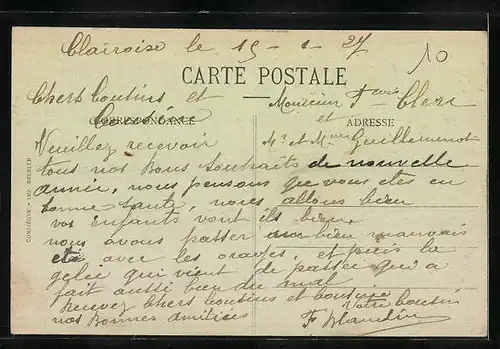 Clairoise le 15 - 1 - 27
10
CARTE POSTALE
Chers Coutins et
Cousine
CORRESPONDANCE
ADRESSE
Monsieur Clerc
et
Mr et Mme Guillemenot
Veuillez recevoir
tous nos Bons Souhaits de nouvelle
année, nous pensons que vous êtes en
bonne santé, nous allons bien
vos enfants vont ils bien,
nous avons passer un bien mauvais
été avec les orages, et puis la
gelée qui vient de passée qui a
fait aussi bien du mal
Recevez Chers Coutins et Coutine
nos Bonnes amitiées
Votre Coutin
F Blandin
COMPIÈGNE